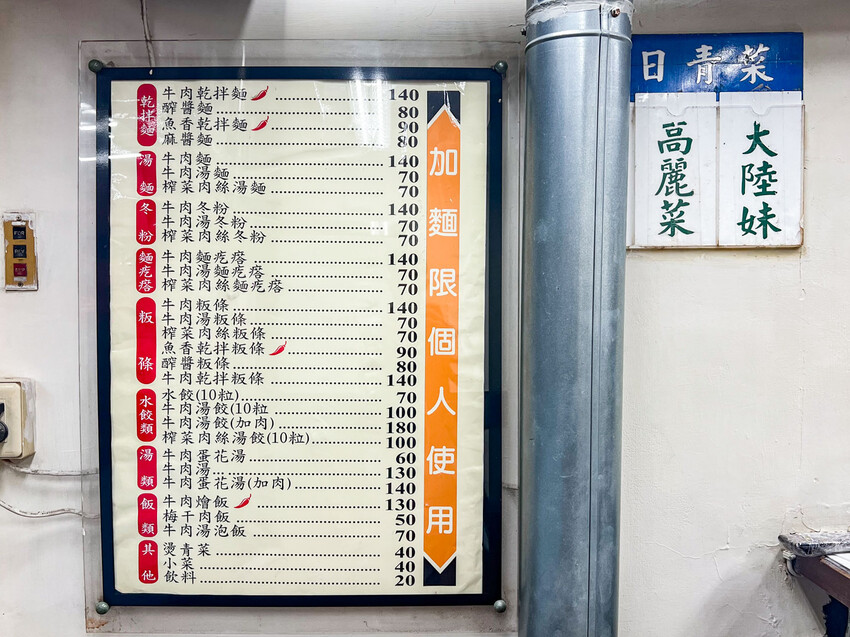 乾拌麵
牛肉乾拌麵 140
醡醬麵 80
魚香乾拌麵 90
麻醬麵 80
湯麵
牛肉麵 140
牛肉湯麵 70
榨菜肉絲湯麵 70
冬粉
牛肉冬粉 140
牛肉湯冬粉 70
榨菜肉絲冬粉 70
麵疙瘩
牛肉麵疙瘩 140
牛肉湯麵疙瘩 70
榨菜肉絲麵疙瘩 70
粄條
牛肉粄條 140
牛肉湯粄條 70
榨菜肉絲粄條 70
魚香乾拌粄條 90
醡醬粄條 80
牛肉乾拌粄條 140
水餃類
水餃(10粒) 70
牛肉湯餃(10粒 100
牛肉湯餃(加肉) 180
榨菜肉絲湯餃(10粒) 100
湯類
牛肉蛋花湯 60
牛肉湯 130
牛肉蛋花湯(加肉) 140
飯類
牛肉燴飯 130
梅干肉飯 50
牛肉湯泡飯 70
其他
燙青菜 40
小菜 40
飲料 20
加麵限個人使用
日青菜
高麗菜
大陸妹